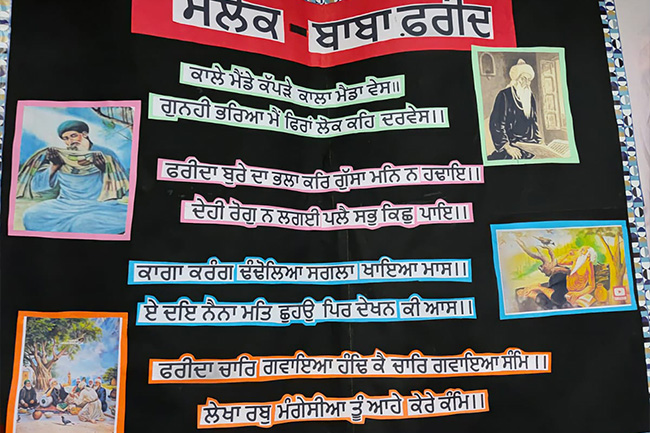 ਸਲੋਕ - ਬਾਬਾ ਫ਼ਰੀਦ
ਕਾਲੇ ਮੈਂਡੇ ਕੱਪੜੇ ਕਾਲਾ ਮੈਡਾ ਵੇਸ॥
ਗੁਨਹੀ ਭਰਿਆ ਮੈਂ ਫਿਰਾਂ ਲੋਕ ਕਹਿ ਦਰਵੇਸ।।
ਫਰੀਦਾ ਬੁਰੇ ਦਾ ਭਲਾ ਕਰਿ ਗੁੱਸਾ ਮਨਿ ਨ ਹਢਾਇ।।
ਦੇਹੀ ਰੋਗੁ ਨ ਲਗਈ ਪਲੈ ਸਭੁ ਕਿਛੁ ਪਾਇ।।
ਕਾਗਾ ਕਰੰਗ ਢੰਢੋਲਿਆ ਸਗਲਾ ਖਾਇਆ ਮਾਸ।।
ਏ ਦਇ ਨੈਨਾ ਮਤਿ ਛੁਹਉ ਪਿਰ ਦੇਖਨ ਕੀ ਆਸ।।
ਫਰੀਦਾ ਚਾਰਿ ਗਵਾਇਆ ਹੰਢਿ ਕੈ ਚਾਰਿ ਗਵਾਇਆ ਸੰਮਿ ।।
ਲੇਖਾ ਰਬੁ ਮੰਗੇਸੀਆ ਤੂੰ ਆਹੇ ਕੇਰੇ ਕੰਮਿ।।